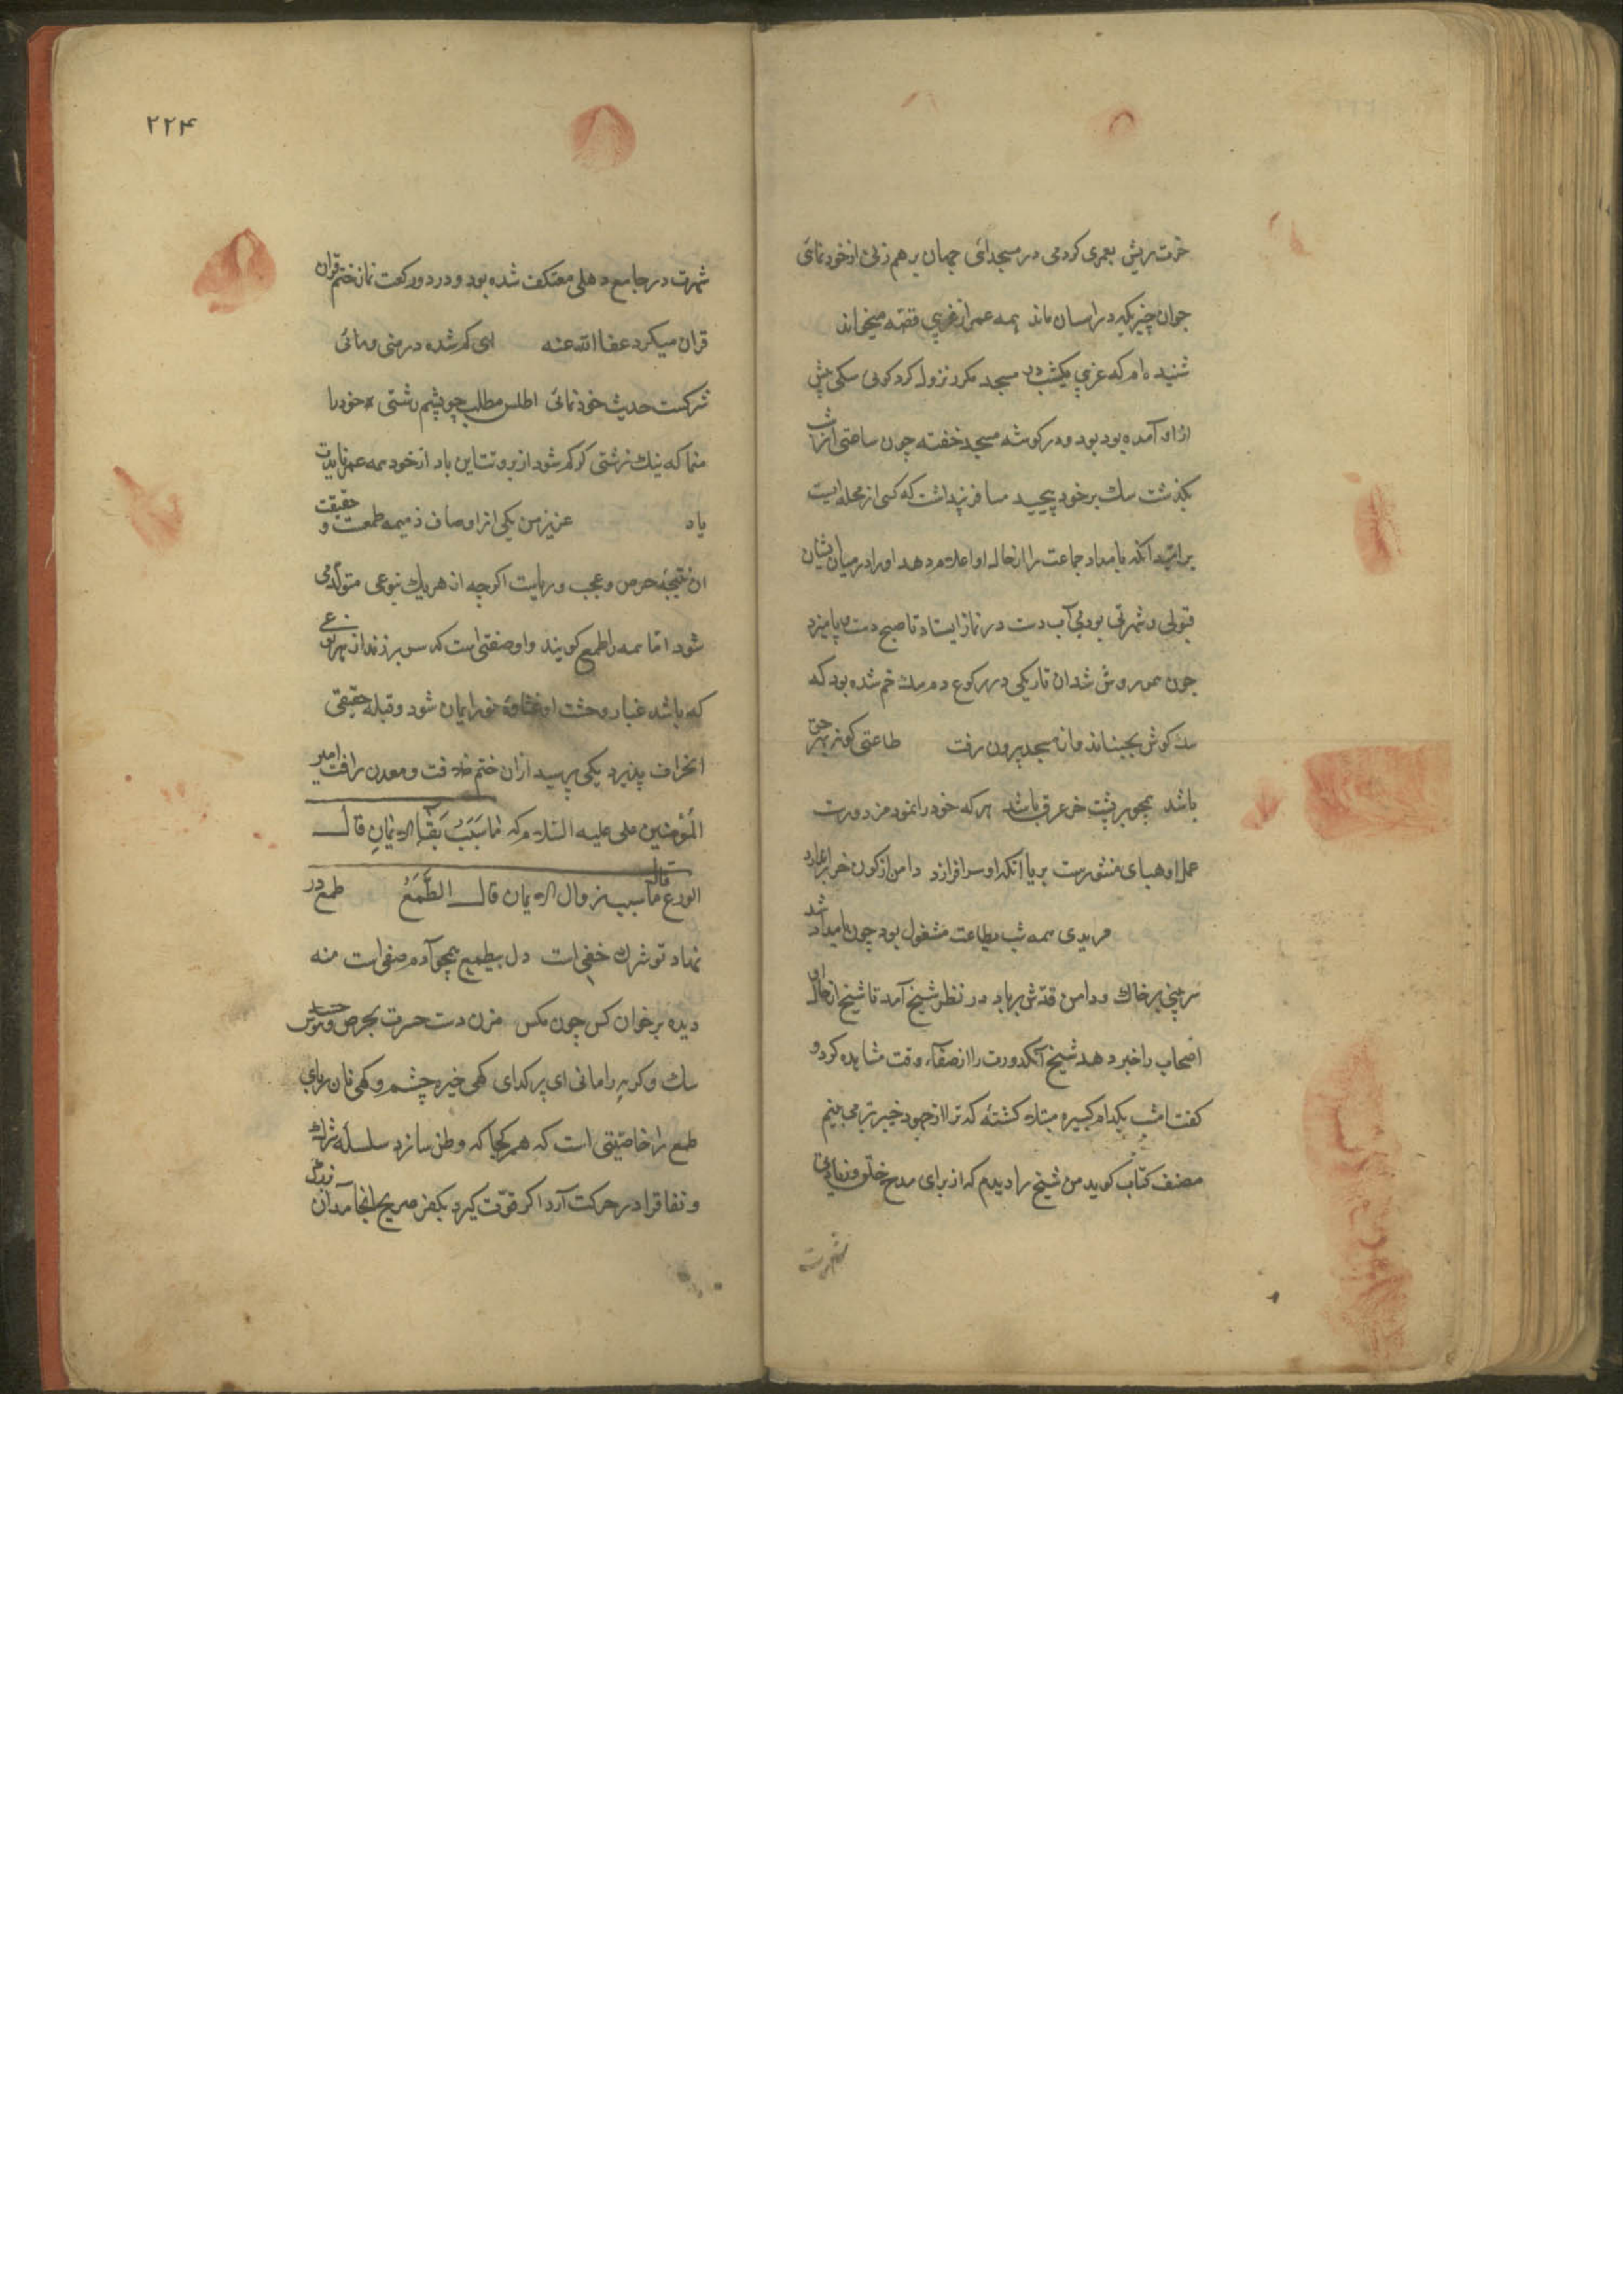 خرت ریش بعمری کردمی در مسجدائی جهان بر هم زنی از خودنمائی
جوان چیز بکیه در اسان ماند همه عمر از غریبی قصّه میخواند
شنیده ام که غریبی یکشب در مسجد مکرر نزول کرد کوئی سکی پیش
از او آمده بود بود و در کوشه مسجد خفته چون ساعتی از شب
بکذشت سک بر خود پیچید مسافر پنداشت که کسی از محله ایست
بر امّید آنکه بامداد جماعت را از حال او اعلام دهد او را در میان ایشان
قبولی و شهرتی بود بی آب دست در نماز ایستاد تا صبح دست و پا میزد
چون روشن شد ان تاریکی در رکوع دم سک خم شده بود که
سک کوش بجنباند و از مسجد بیرون رفت طاعتی کو نه بهر حق
باشد همچو بر پشت خر عرق باشد هر که خود را نمود مزدورست
عمل او هبای منثورست بریا آنکه او سرافرازد دامن از کون خر
مریدی همه شب بطاعت مشغول بود چون بامداد شد
سر بینی بر خاک و دامن قدش بر باد در نظر شیخ آمد تا شیخ از حال او
اصحاب را خبر دهد شیخ آنکدورت را از صفاء وقت مشاهده کرد و
کفت امشب بکدام کبیره مبتلا کشتهٔ که ترا از جهود خیبر بتر می بینم
مصنف کتاب کوید من شیخ را دیدم که از برای مدح خلق و زیادتی
شهرت
۲۲۴
شهرت در جامع دهلی معتکف شده بود و در دو رکعت نماز ختم قران
قران میکرد عفا الله عنه ای کم شده در منی و مائی
شرکست حدیث خودنمائی اطلس مطلب چو پشم رشتی خود را
منما که نیک زشتی کو کم شود از بروتت این باد از خود همه عمر نایدت
یاد عزیز من یکی از اوصاف ذمیمه طمعت و حقیقت
ان نتیجهٔ حرص و عجب و ریایست اکرچه از هر یک بنوعی متولّد می
شود امّا همه را طمع کویند و او صفتی است که سر بر زند از هر نوعی
که باشد غبار وحشت او غشاوهٔ نور ایمان شود و قبلهٔ حقیقی
انحراف پذیرد یکی پرسید از ان ختم خلافت و معدن رافت امیر
المؤمنین علی علیه السّلام که ما سَبَبُ بَقَاءِ الایمانِ قال
الورع قال ما سبب زوال الایمان قال الطَّمَعُ طمع در
نهاد تو شرک خفی است دل بیطمع همچو آدم صفی است منه
دیده بر خوان کس چون مکس مزن دست حسرت بحرص و هوس
سک و کربه را مانی ای پر کدای کهی خیره چشم و کهی نان ربای
طمع را خاصیتی است که هر کجا که وطن سازد سلسلهٔ شرک
و نفاق را در حرکت آرد اکر قوّت کیرد بکفر صریح انجامد ان